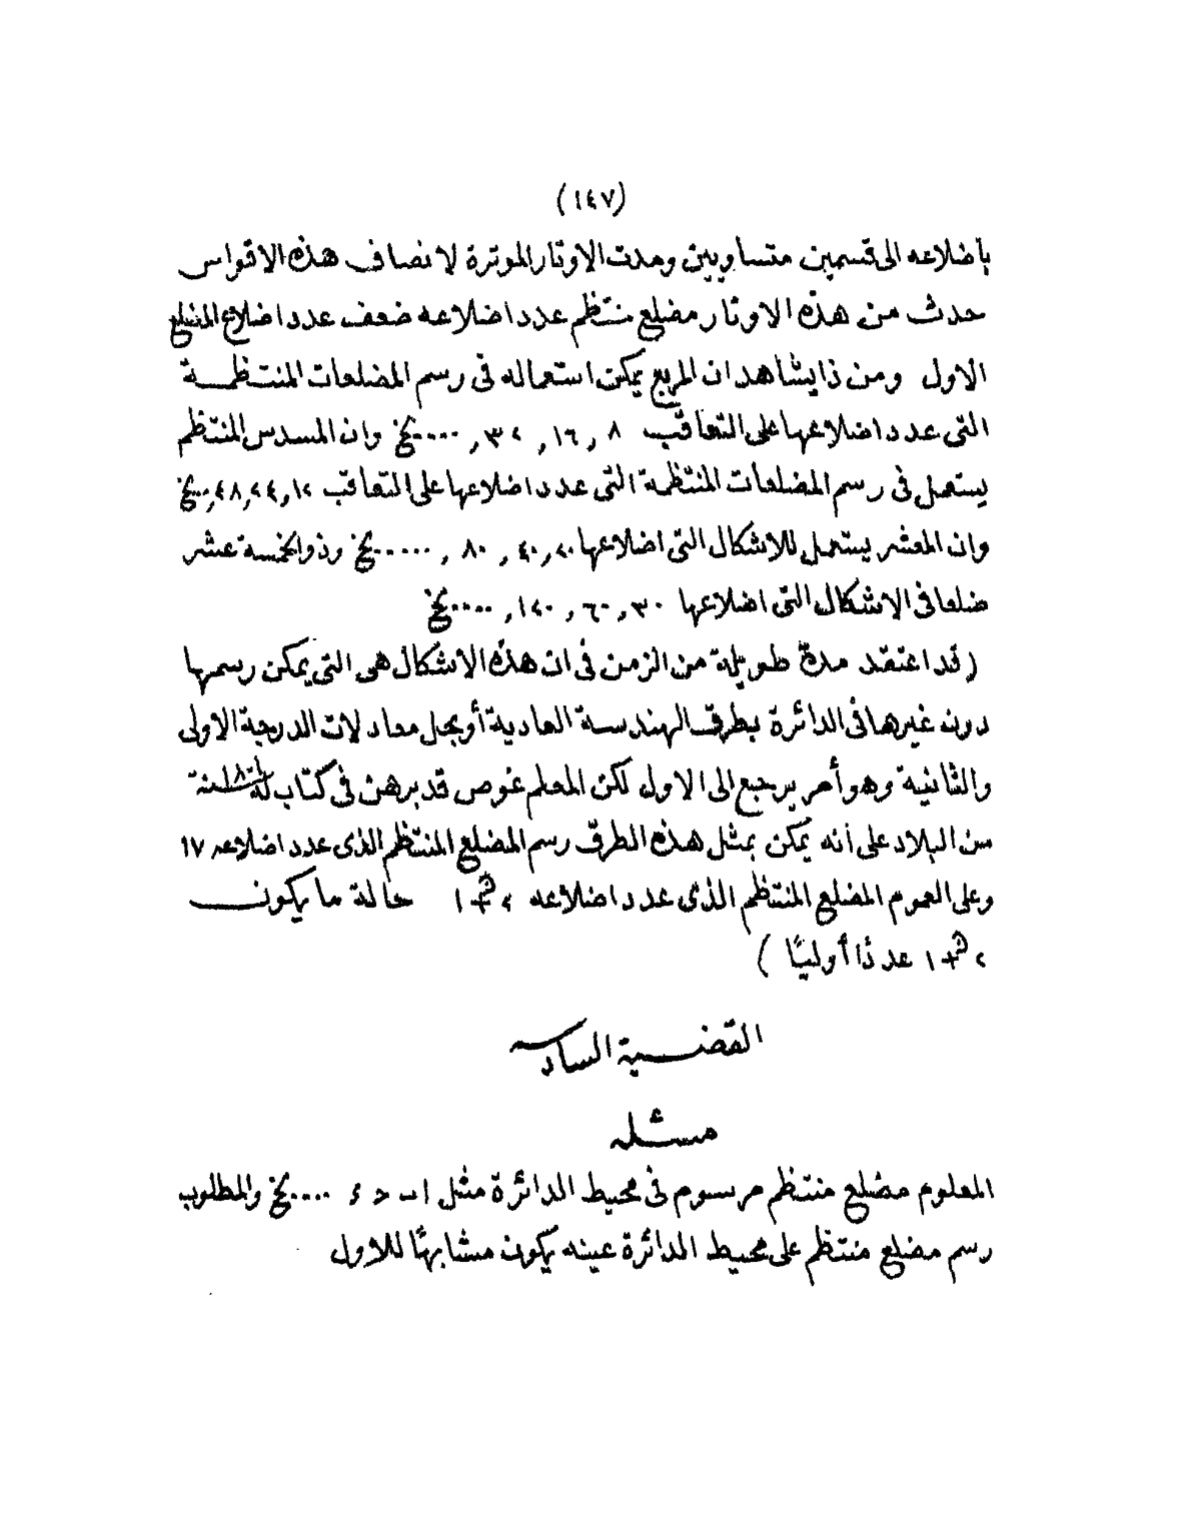 (١٤٧)
بأضلاعه الى قسمين متساويين ومدت الاوتار الموترة لانصاف هذه الاقواس
حدث من هذه الاوتار مضلع منتظم عدد اضلاعه ضعف عدد اضلاع المضلع
الاول ومن ذا يشاهد ان المربع يمكن استعماله فى رسم المضلعات المنتظمة
التى عدد اضلاعها على التعاقب ٨ , ١٦ , ٣٢ , ....الخ وان المسدس المنتظم
يستعمل فى رسم المضلعات المنتظمة التى عدد اضلاعها على التعاقب ١٢,٢٤,٤٨,..الخ
وان المعشر يستعمل للاشكال التى اضلاعها ٢٠,٤٠ , ٨٠ , .....الخ وذو الخمسة عشر
ضلعا فى الاشكال التى اضلاعها ٣٠ , ٦٠ , ١٢٠ , ....الخ
(قد اعتقد مدة طويلة من الزمن فى ان هذه الاشكال هى التى يمكن رسمها
دون غيرها فى الدائرة بطرق الهندسة العادية أو بحل معادلات الدرجة الاولى
والثانية وهو أمر يرجع الى الاول لكن المعلم غوص قد برهن فى كتاب له
من البلاد على أنه يمكن بمثل هذه الطرق رسم المضلع المنتظم الذى عدد اضلاعه ١٧
وعلى العموم المضلع المنتظم الذى عدد اضلاعه ٢^ن + ١ حالة ما يكون
٢^ن + ١ عددًا أوليًا )
القضية السادسه
مسئله
المعلوم مضلع منتظم مرسوم فى محيط الدائرة مثل ا ب ح ء ....الخ والمطلوب
رسم مضلع منتظم على محيط الدائرة عينه يكون مشابهًا للاول